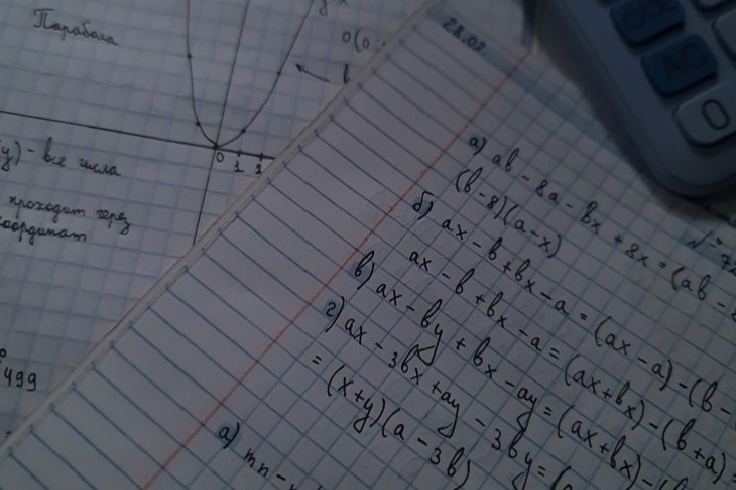 Парабола
0(0
в
0 1 2
y) - все числа
проходит через
координат
499
28.02
AC
0
№
а) ab - 8a - bx + 8x = (ab -
(b - 8)(a - x)
б) ax - b + bx - a = (ax - a) - (b -
ax - b + bx - a = (ax + bx) - (b + a)
в) ax - by + bx - ay = (ax + bx) - (b
г) ax - 3bx + ay - 3by = (a
= (x + y)(a - 3b)
а) mn -